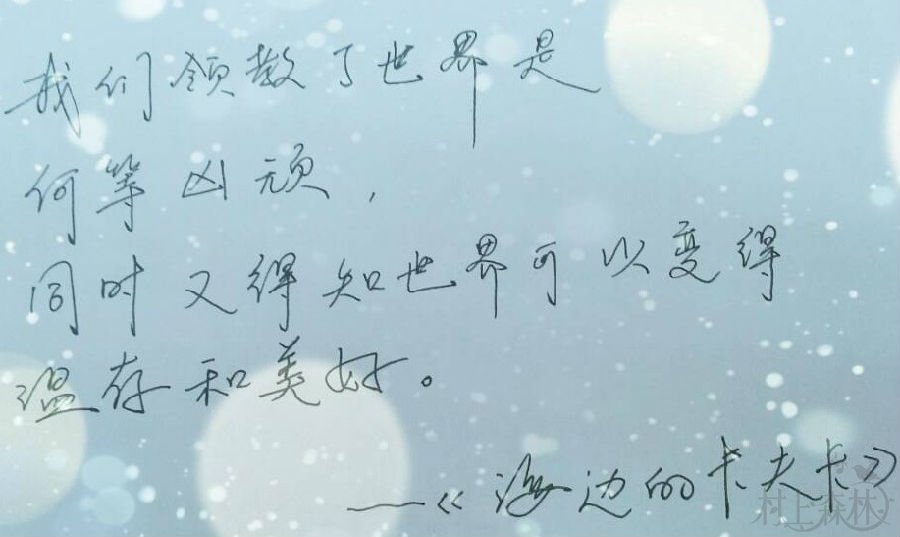 我们领教了世界是
何等凶顽，
同时又得知世界可以变得
温存和美好。
——《海边的卡夫卡》
村上森林